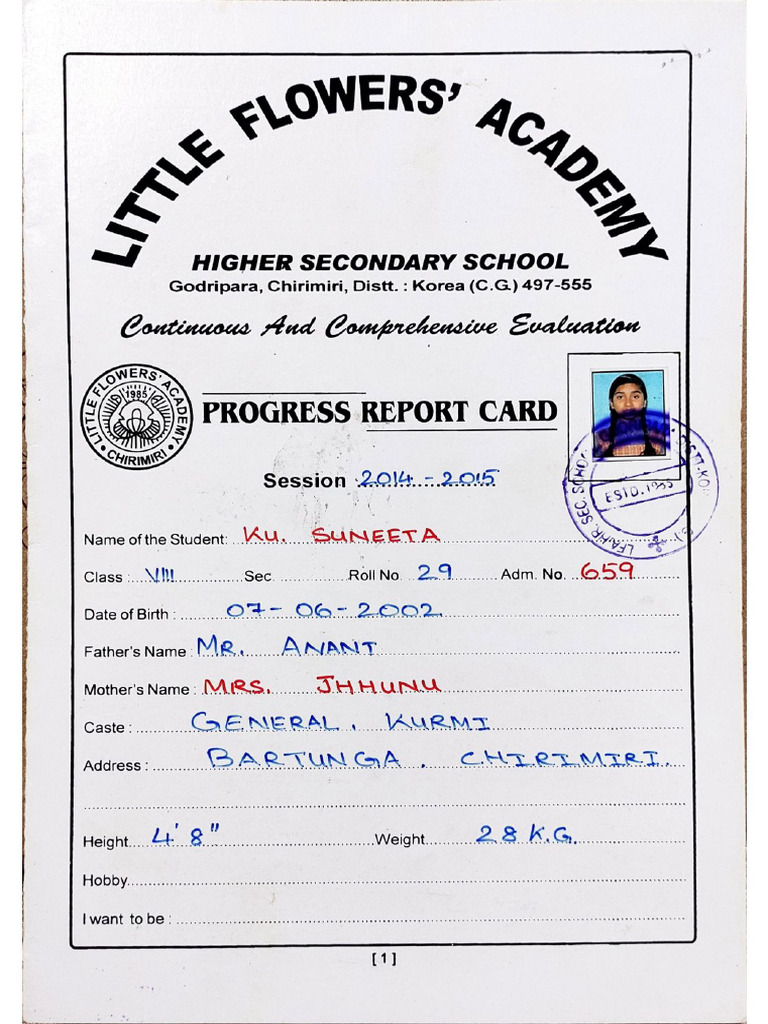 LITTLE FLOWERS' ACADEMY
HIGHER SECONDARY SCHOOL
Godripara, Chirimiri, Distt. : Korea (C.G.) 497-555
Continuous And Comprehensive Evaluation
LITTLE FLOWERS' ACADEMY
1985
• CHIRIMIRI •
PROGRESS REPORT CARD
Session 2014-2015
ESTD. 1985
LFA HR. SEC. SCHOOL
Name of the Student: KU. SUNEETA
Class : VIII Sec. Roll No. 29 Adm. No. 659
Date of Birth : 07-06-2002
Father's Name : MR. ANANT
Mother's Name : MRS. JHHUNU
Caste : GENERAL. KURMI
Address : BARTUNGA. CHIRIMIRI.
Height 4'8" Weight 28 K.G.
Hobby
I want to be :
[ 1 ]